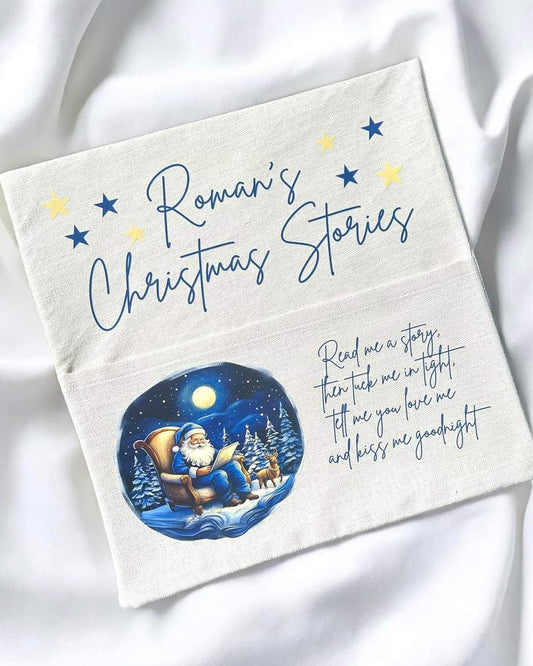 Roman's
Christmas Stories
Read me a story,
then tuck me in tight,
tell me you love me
and kiss me goodnight